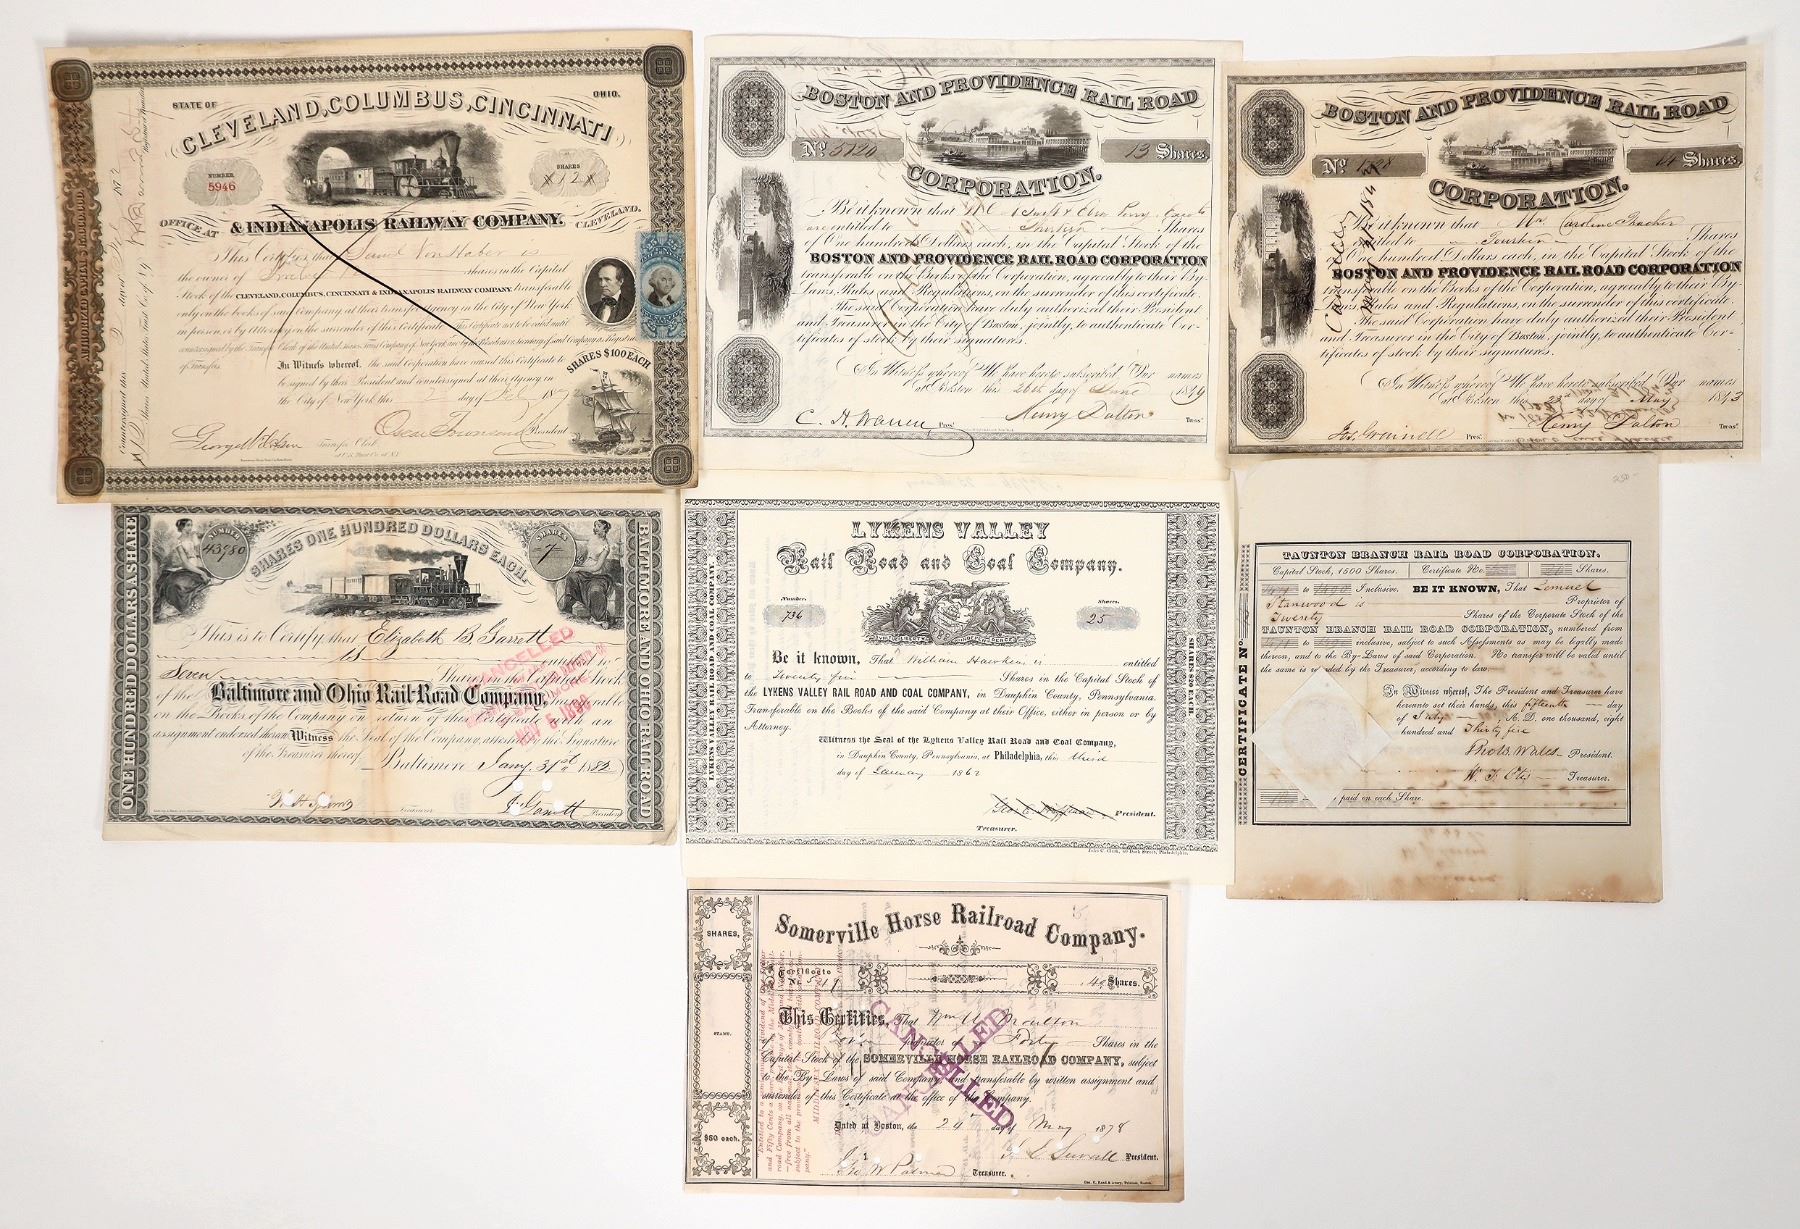 STATE OF
OHIO.
CLEVELAND, COLUMBUS, CINCINNATI
NUMBER
5946
SHARES
12
OFFICE AT
& INDIANAPOLIS RAILWAY COMPANY.
CLEVELAND.
This Certifies that
is
the owner of
shares in the Capital
Stock of the CLEVELAND, COLUMBUS, CINCINNATI & INDIANAPOLIS RAILWAY COMPANY, transferable
only on the books of said Company at their transfer agency in the City of New York
in person or by Attorney on the surrender of this Certificate.
In Witness whereof, the said Corporation have caused this Certificate to
be signed by their President and countersigned at their Agency in
the City of New York this
SHARES $100 EACH
President
Transfer Clerk
AUTHORIZED CAPITAL
BOSTON AND PROVIDENCE RAIL ROAD
No. 5120
13 Shares.
CORPORATION.
Be it known that
are entitled to
Shares
of One hundred Dollars each, in the Capital Stock of the
BOSTON AND PROVIDENCE RAIL ROAD CORPORATION
transferable on the Books of the Corporation, agreeably to their By-
Laws, Rules and Regulations, on the surrender of this certificate.
The said Corporation have duly authorized their President
and Treasurer in the City of Boston, jointly, to authenticate Cer-
tificates of stock by their signatures.
In Witness whereof We have hereto subscribed Our names
at Boston this 26th day of June
Pres.
Henry Dalton
Treas.
BOSTON AND PROVIDENCE RAIL ROAD
No.
14 Shares.
CORPORATION.
Be it known that Caroline Thacher
entitled to Fourteen
Shares
of One hundred Dollars each, in the Capital Stock of the
BOSTON AND PROVIDENCE RAIL ROAD CORPORATION
transferable on the Books of the Corporation, agreeably to their By-
Laws, Rules and Regulations, on the surrender of this certificate.
The said Corporation have duly authorized their President
and Treasurer in the City of Boston, jointly, to authenticate Cer-
tificates of stock by their signatures.
In Witness whereof We have hereto subscribed Our names
at Boston this day of May
Jos. Grinnell Pres.
Henry Dalton
Treas.
Cancelled
NUMBER
43980
SHARES ONE HUNDRED DOLLARS EACH.
SHARES
7
ONE HUNDRED DOLLARS A SHARE
BALTIMORE AND OHIO RAILROAD
This is to Certify that Elizabeth B Garrett
is entitled to
Seven Shares in the Capital Stock
of the Baltimore and Ohio Rail-Road Company, transferable
on the Books of the Company on return of this Certificate with an
assignment endorsed hereon. Witness the Seal of the Company, attested by the Signature
of the Treasurer thereof.
Baltimore Jany. 31st 1882
Treasurer
President
CANCELLED
LYKENS VALLEY
Rail Road and Coal Company.
Number.
736
Shares.
25
LYKENS VALLEY RAIL ROAD AND COAL COMPANY.
SHARES $20 EACH.
Be it known, That William Hawkins is entitled
to Twenty five Shares in the Capital Stock of
the LYKENS VALLEY RAIL ROAD AND COAL COMPANY, in Dauphin County, Pennsylvania.
Transferable on the Books of the said Company at their Office, either in person or by
Attorney.
Witness the Seal of the Lykens Valley Rail Road and Coal Company,
in Dauphin County, Pennsylvania, at Philadelphia, this third
day of January 1862
President.
Treasurer.
250-
TAUNTON BRANCH RAIL ROAD CORPORATION.
Capital Stock, 1500 Shares.
Certificate No.
Shares.
CERTIFICATE No.
to Inclusive. BE IT KNOWN, That Lemuel
Stanwood is Proprietor of
Twenty Shares of the Corporate Stock of the
TAUNTON BRANCH RAIL ROAD CORPORATION, numbered from
to inclusive, subject to such Assessments as may be legally made
thereon, and to the By-Laws of said Corporation. No transfer will be valid until
the same is recorded by the Treasurer, according to law.
In Witness whereof, The President and Treasurer have
hereunto set their hands, this fifteenth day
of July A. D. one thousand, eight
hundred and Thirty five
Thos B. Wales President.
W. F. Otis Treasurer.
paid on each Share.
Somerville Horse Railroad Company.
SHARES,
STAMP.
$50 each.
Certificate
No. 519
40 Shares.
This Certifies, That Wm A. Moulton
of proprietor of Forty Shares in the
Capital Stock of the SOMERVILLE HORSE RAILROAD COMPANY, subject
to the By-Laws of said Company, and transferable by written assignment and
surrender of this Certificate at the office of the Company.
Dated at Boston, the 24 day of May 1878
President.
Geo W Palmer Treasurer.
CANCELLED
CANCELLED